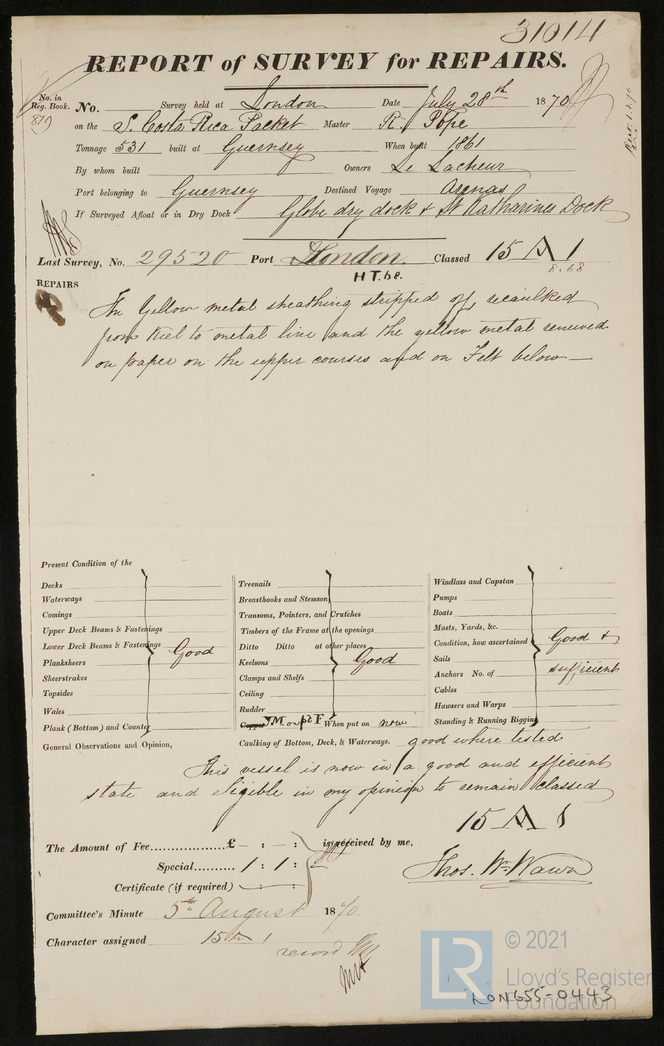 31014
REPORT of SURVEY for REPAIRS.
No. in Reg. Book. No. Survey held at London Date July 28th 1870
819 on the S. Costa Rica Packet Master R. Pope
Tonnage 531 built at Guernsey When built 1861
By whom built Owners Le Lacheur
Port belonging to Guernsey Destined Voyage Arenas
If Surveyed Afloat or in Dry Dock Globe dry dock & St Katharines Dock
Last Survey, No. 29520 Port London Classed 15 A 1
8.68
REPAIRS
The Yellow metal sheathing stripped off, recaulked
from Keel to metal line and the yellow metal renewed
on paper on the upper courses and on Felt below
Present Condition of the
Decks
Waterways
Comings
Upper Deck Beams & Fastenings
Lower Deck Beams & Fastenings Good
Planksheers
Sheerstrakes
Topsides
Wales
Plank (Bottom) and Counter
Treenails
Breasthooks and Stemson
Transoms, Pointers, and Crutches
Timbers of the Frame at the openings
Ditto Ditto at other places
Keelsons Good
Clamps and Shelfs
Ceiling
Rudder
Copper When put on now
Windlass and Capstan
Pumps
Boats
Masts, Yards, &c.
Condition, how ascertained Good &
Sails
Anchors No. of sufficient
Cables
Hawsers and Warps
Standing & Running Rigging
General Observations and Opinion, Caulking of Bottom, Deck, & Waterways. good where tested
This vessel is now in a good and efficient
state and eligible in my opinion to remain classed
15 A 1
The Amount of Fee £ - : - : is received by me,
Special 1 : 1 :
Thos. Wm Wawn
Certificate (if required) - : - :
Committee's Minute 5th August 1870
Character assigned 15 A 1
record
© 2021
LR
Lloyd's Register
Foundation
LON655-0443